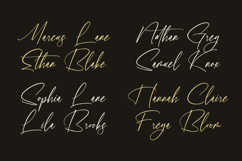 Marcus Lane
Ethan Blake
Nathan Grey
Samuel Knox
Sophia Lane
Lila Brooks
Hannah Claire
Freya Bloom